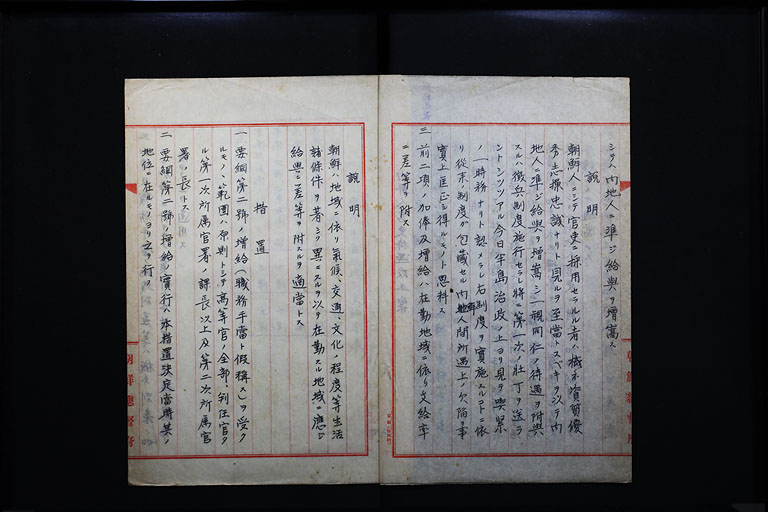 シタハ内地人ニ準ジ給與ヲ增嵩ス
說明
朝鮮人ニシテ官吏ニ採用セラルル者ハ概ネ資質優
秀志操忠誠ナリト見ルヲ至當トスベキヲ以テ內
地人ニ準ジ給與ヲ增嵩シ一視同仁ノ待遇ヲ附與
スルハ徵兵制度施行セラレ將ニ第一次ノ壯丁ヲ送ラ
ントシツツアル今日半島治政ノ上ヨリ見ルモ喫緊
ノ一時務ナリト認メラレ右制度ヲ實施スルコトニ依
リ從來ノ制度ガ包藏セル內鮮人間所遇上ノ欠陷ヲ事
實上匡正シ得ルモノト思料ス
三 前二項ノ加俸及增給ハ在勤地域ニ依リ支給率
ニ差等ヲ附ス
說明
朝鮮ハ地域ニ依リ氣候、交通、文化ノ程度等生活
諸條件ヲ著シク異ニスルヲ以テ在勤スル地域ニ應ジ
給與ニ差等ヲ附スルヲ適當トス
措置
一 要綱第二號ノ增給(職務手當ト假稱ス)ヲ受ク
ルモノノ範圍ハ原則トシテ高等官ノ全部、判任官タ
ル第一次所屬官署ノ課長以上及第二次所屬官
署ノ長トス
二 要綱第二號ノ增給ノ實行ハ本措置決定當時其ノ
地位ニ在ルモノヨリ之ヲ行フ
朝鮮總督府